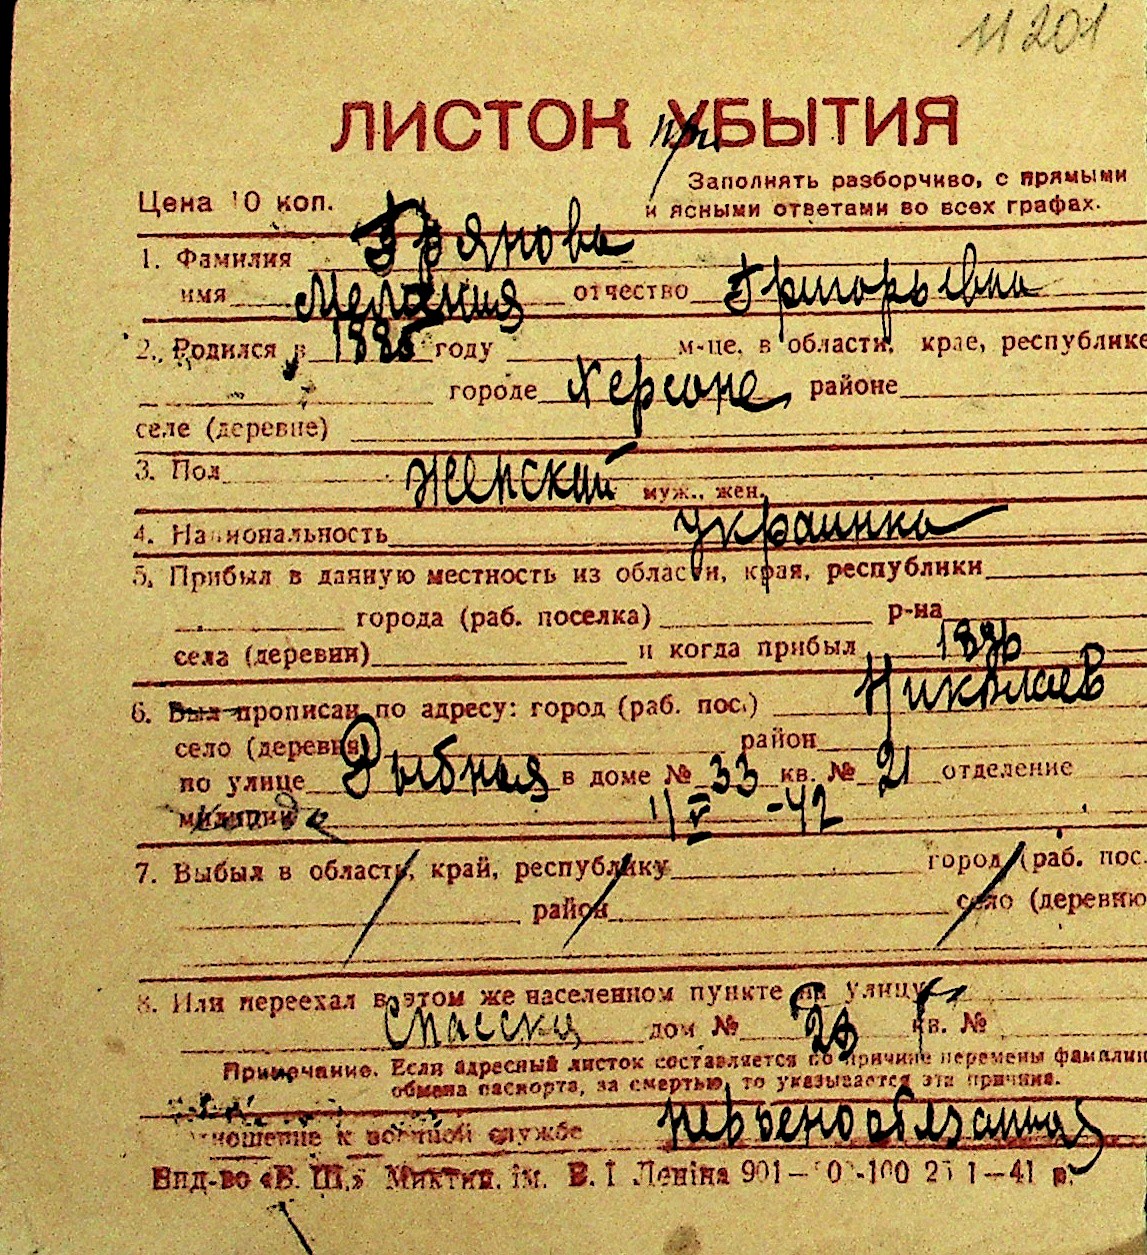 11201
ЛИСТОК УБЫТИЯ
при
Заполнять разборчиво, с прямыми
Цена 10 коп.
и ясными ответами во всех графах.
1. Фамилия Грянова
имя Мелания отчество Григорьевна
2. Родился в 1885 году м-це, в области, крае, республике
городе Херсоне районе
селе (деревне)
3. Пол женский муж., жен.
4. Национальность украинка
5. Прибыл в данную местность из области, края, республики
города (раб. поселка) р-на
села (деревни) и когда прибыл 1896
6. Был прописан по адресу: город (раб. пос.) Николаев
село (деревня) район
по улице Рыбная в доме № 33 кв. № 21 отделение
милиции 11 V -42
7. Выбыл в область, край, республику город (раб. пос.
район село (деревню
8. Или переехал в этом же населенном пункте на улицу
Спасску дом № 23 кв. №
Примечание. Если адресный листок составляется по причине перемены фамилии
обмена паспорта, за смертью, то указывается эта причина.
ношение к военной службе невоенообязанная
Вид-во «Б. Ш.» Миктип. ім. В. І Леніна 901— 100 25 I—41 р.